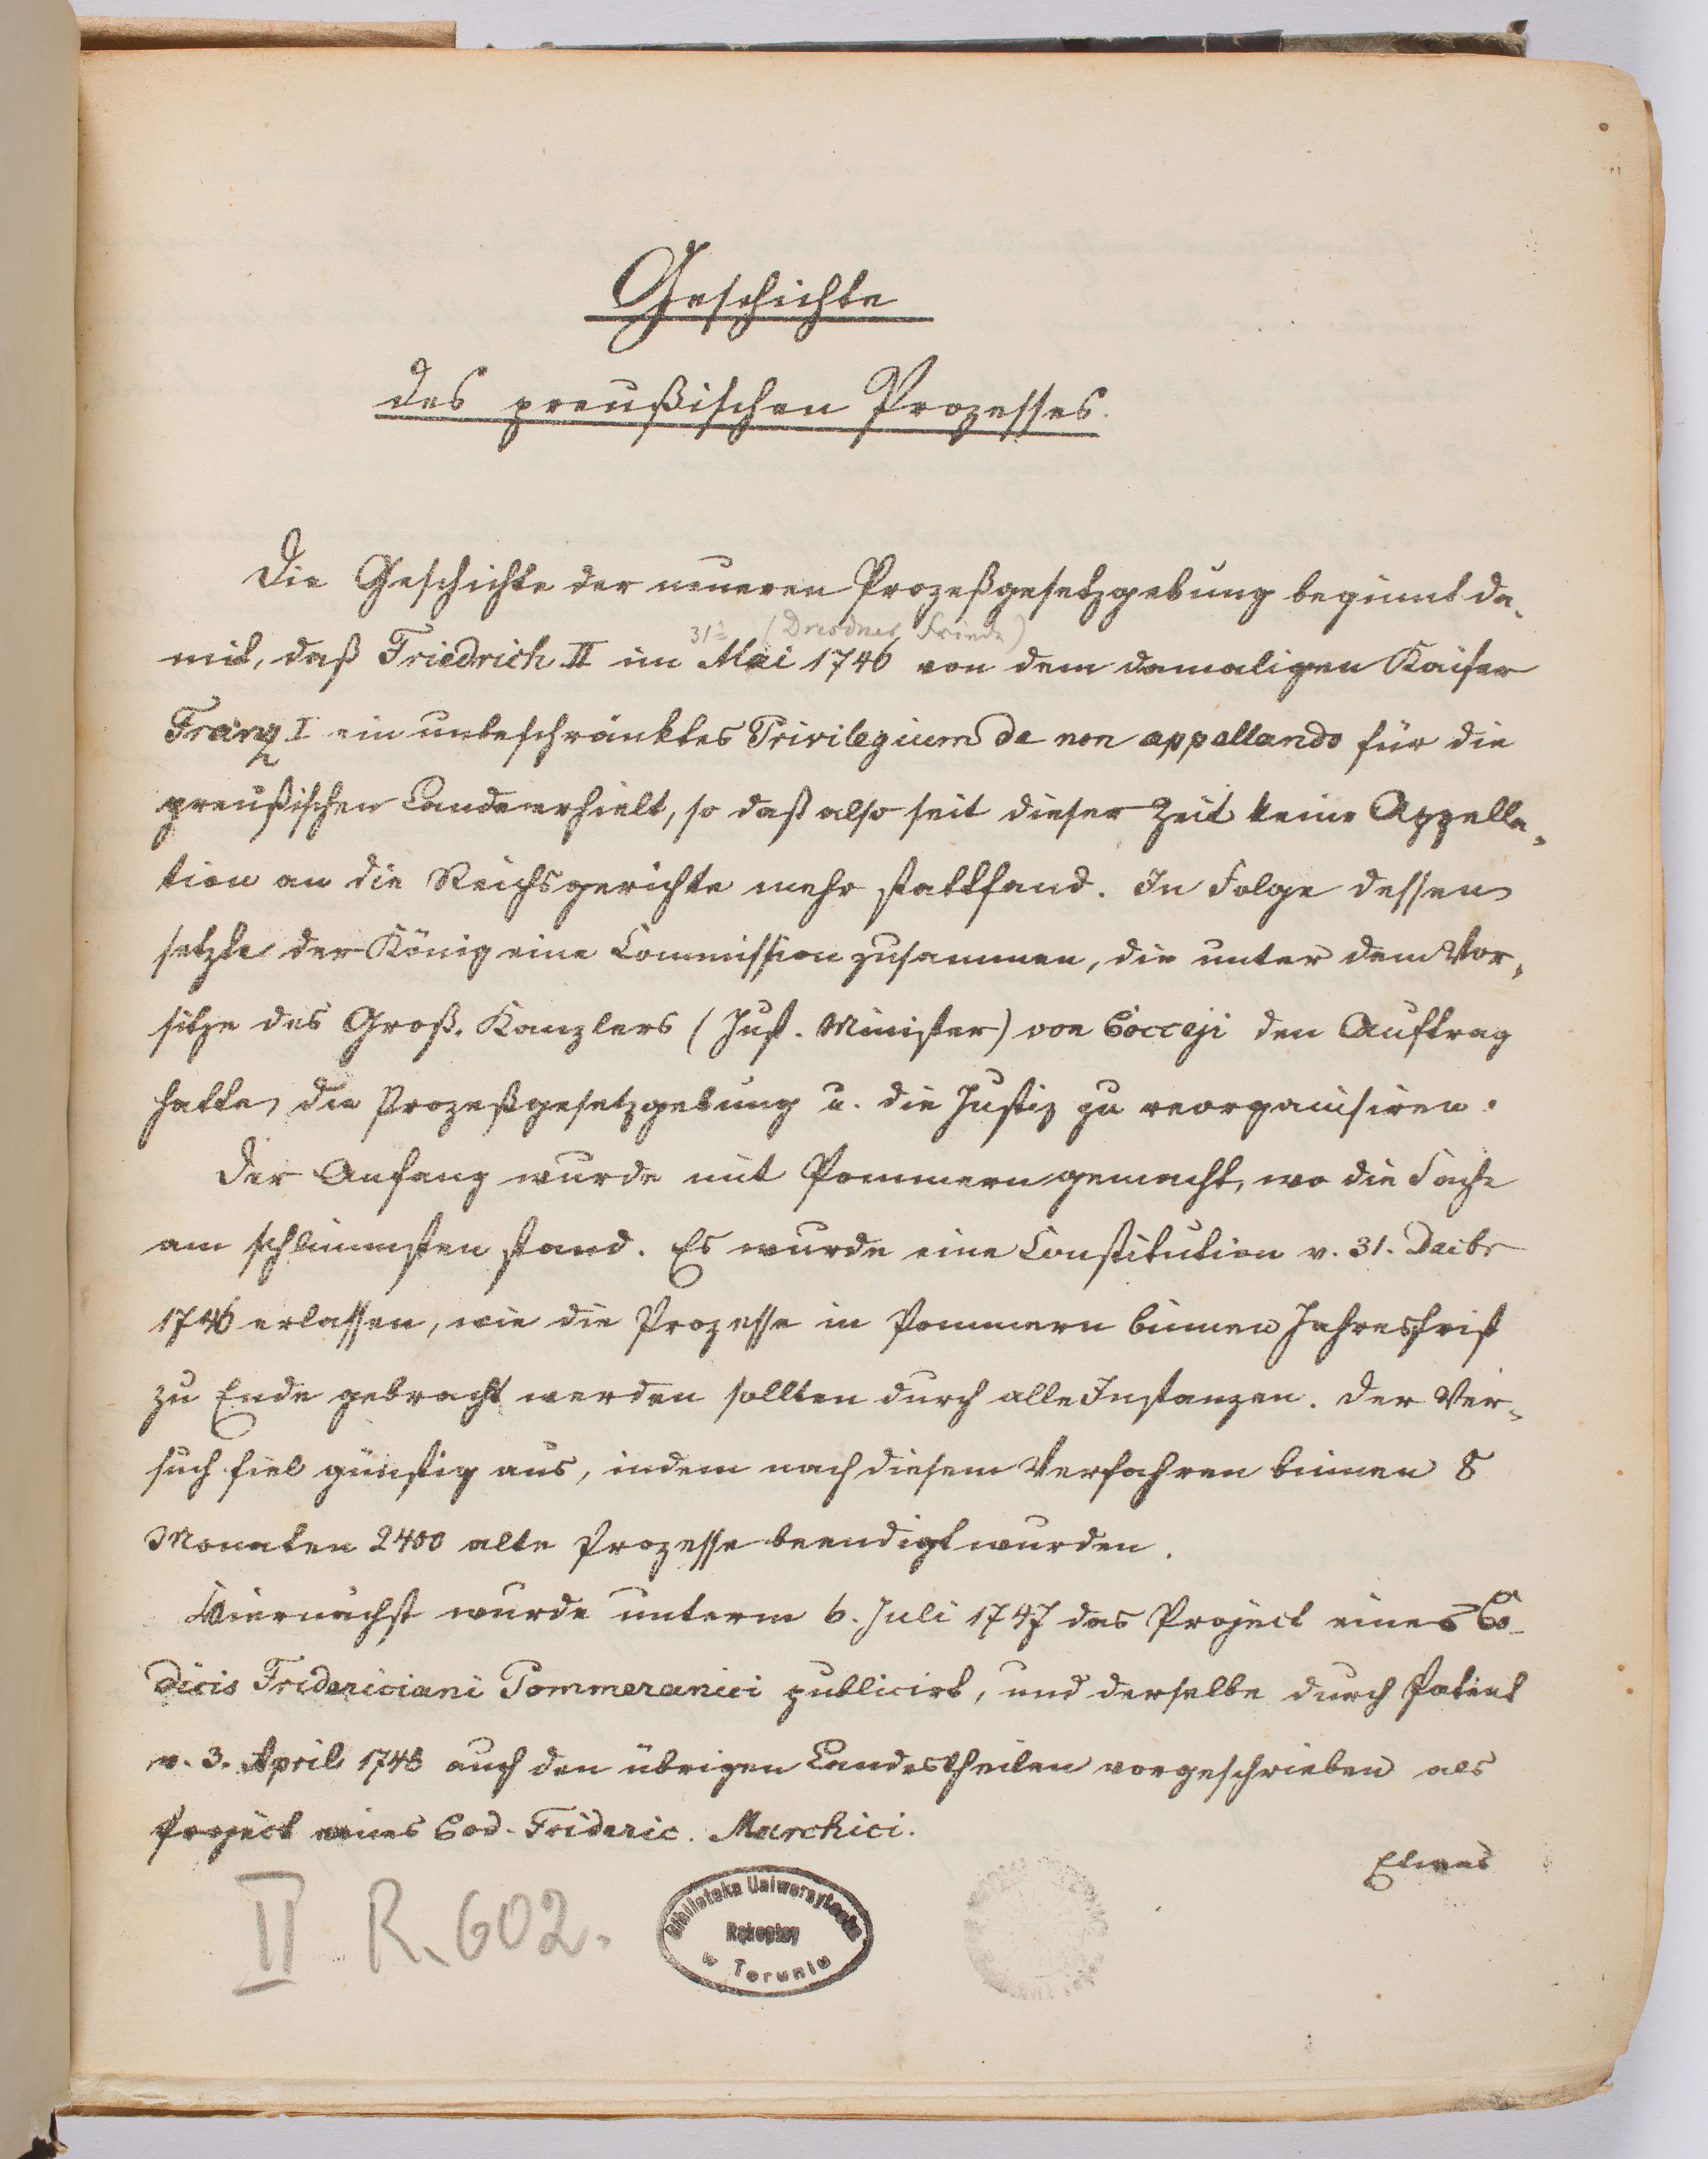 Geschichte
des preußischen Prozesses.
Die Geschichte der neueren Prozeßgesetzgebung beginnt da-
31t (Dresdner Friede)
mit, daß Friedrich II im Mai 1746 von dem damaligen Kaiser
Franz I ein unbeschränktes Privilegium de non appellando für die
preußischen Lande erhielt, so daß also seit dieser Zeit keine Appella-
tion an die Reichsgerichte mehr stattfand. In Folge dessen
setzte der König eine Commission zusammen, die unter dem Vor-
sitze des Groß. Kanzlers (Just. Minister) von Cocceji den Auftrag
hatte, die Prozeßgesetzgebung u. die Justiz zu reorganisiren.
Der Anfang wurde mit Pommern gemacht, wo die Sache
am schlimmsten stand. Es wurde eine Constitution v. 31. Decbr
1746 erlassen, wie die Prozesse in Pommern binnen Jahresfrist
zu Ende gebracht werden sollten durch alle Instanzen. Der Ver-
such fiel günstig aus, indem nach diesem Verfahren binnen 8
Monaten 2400 alte Prozesse beendigt wurden.
Hiernächst wurde unterm 6. Juli 1747 das Project eines Co-
dicis Fridericiani Pommeranici publicirt, und derselbe durch Patent
v. 3. April 1748 auch den übrigen Landestheilen vorgeschrieben als
Project eines Cod. Frideric. Marchici.
Etwas
II R. 602.
Biblioteka Uniwersytecka
Rękopisy
w Toruniu